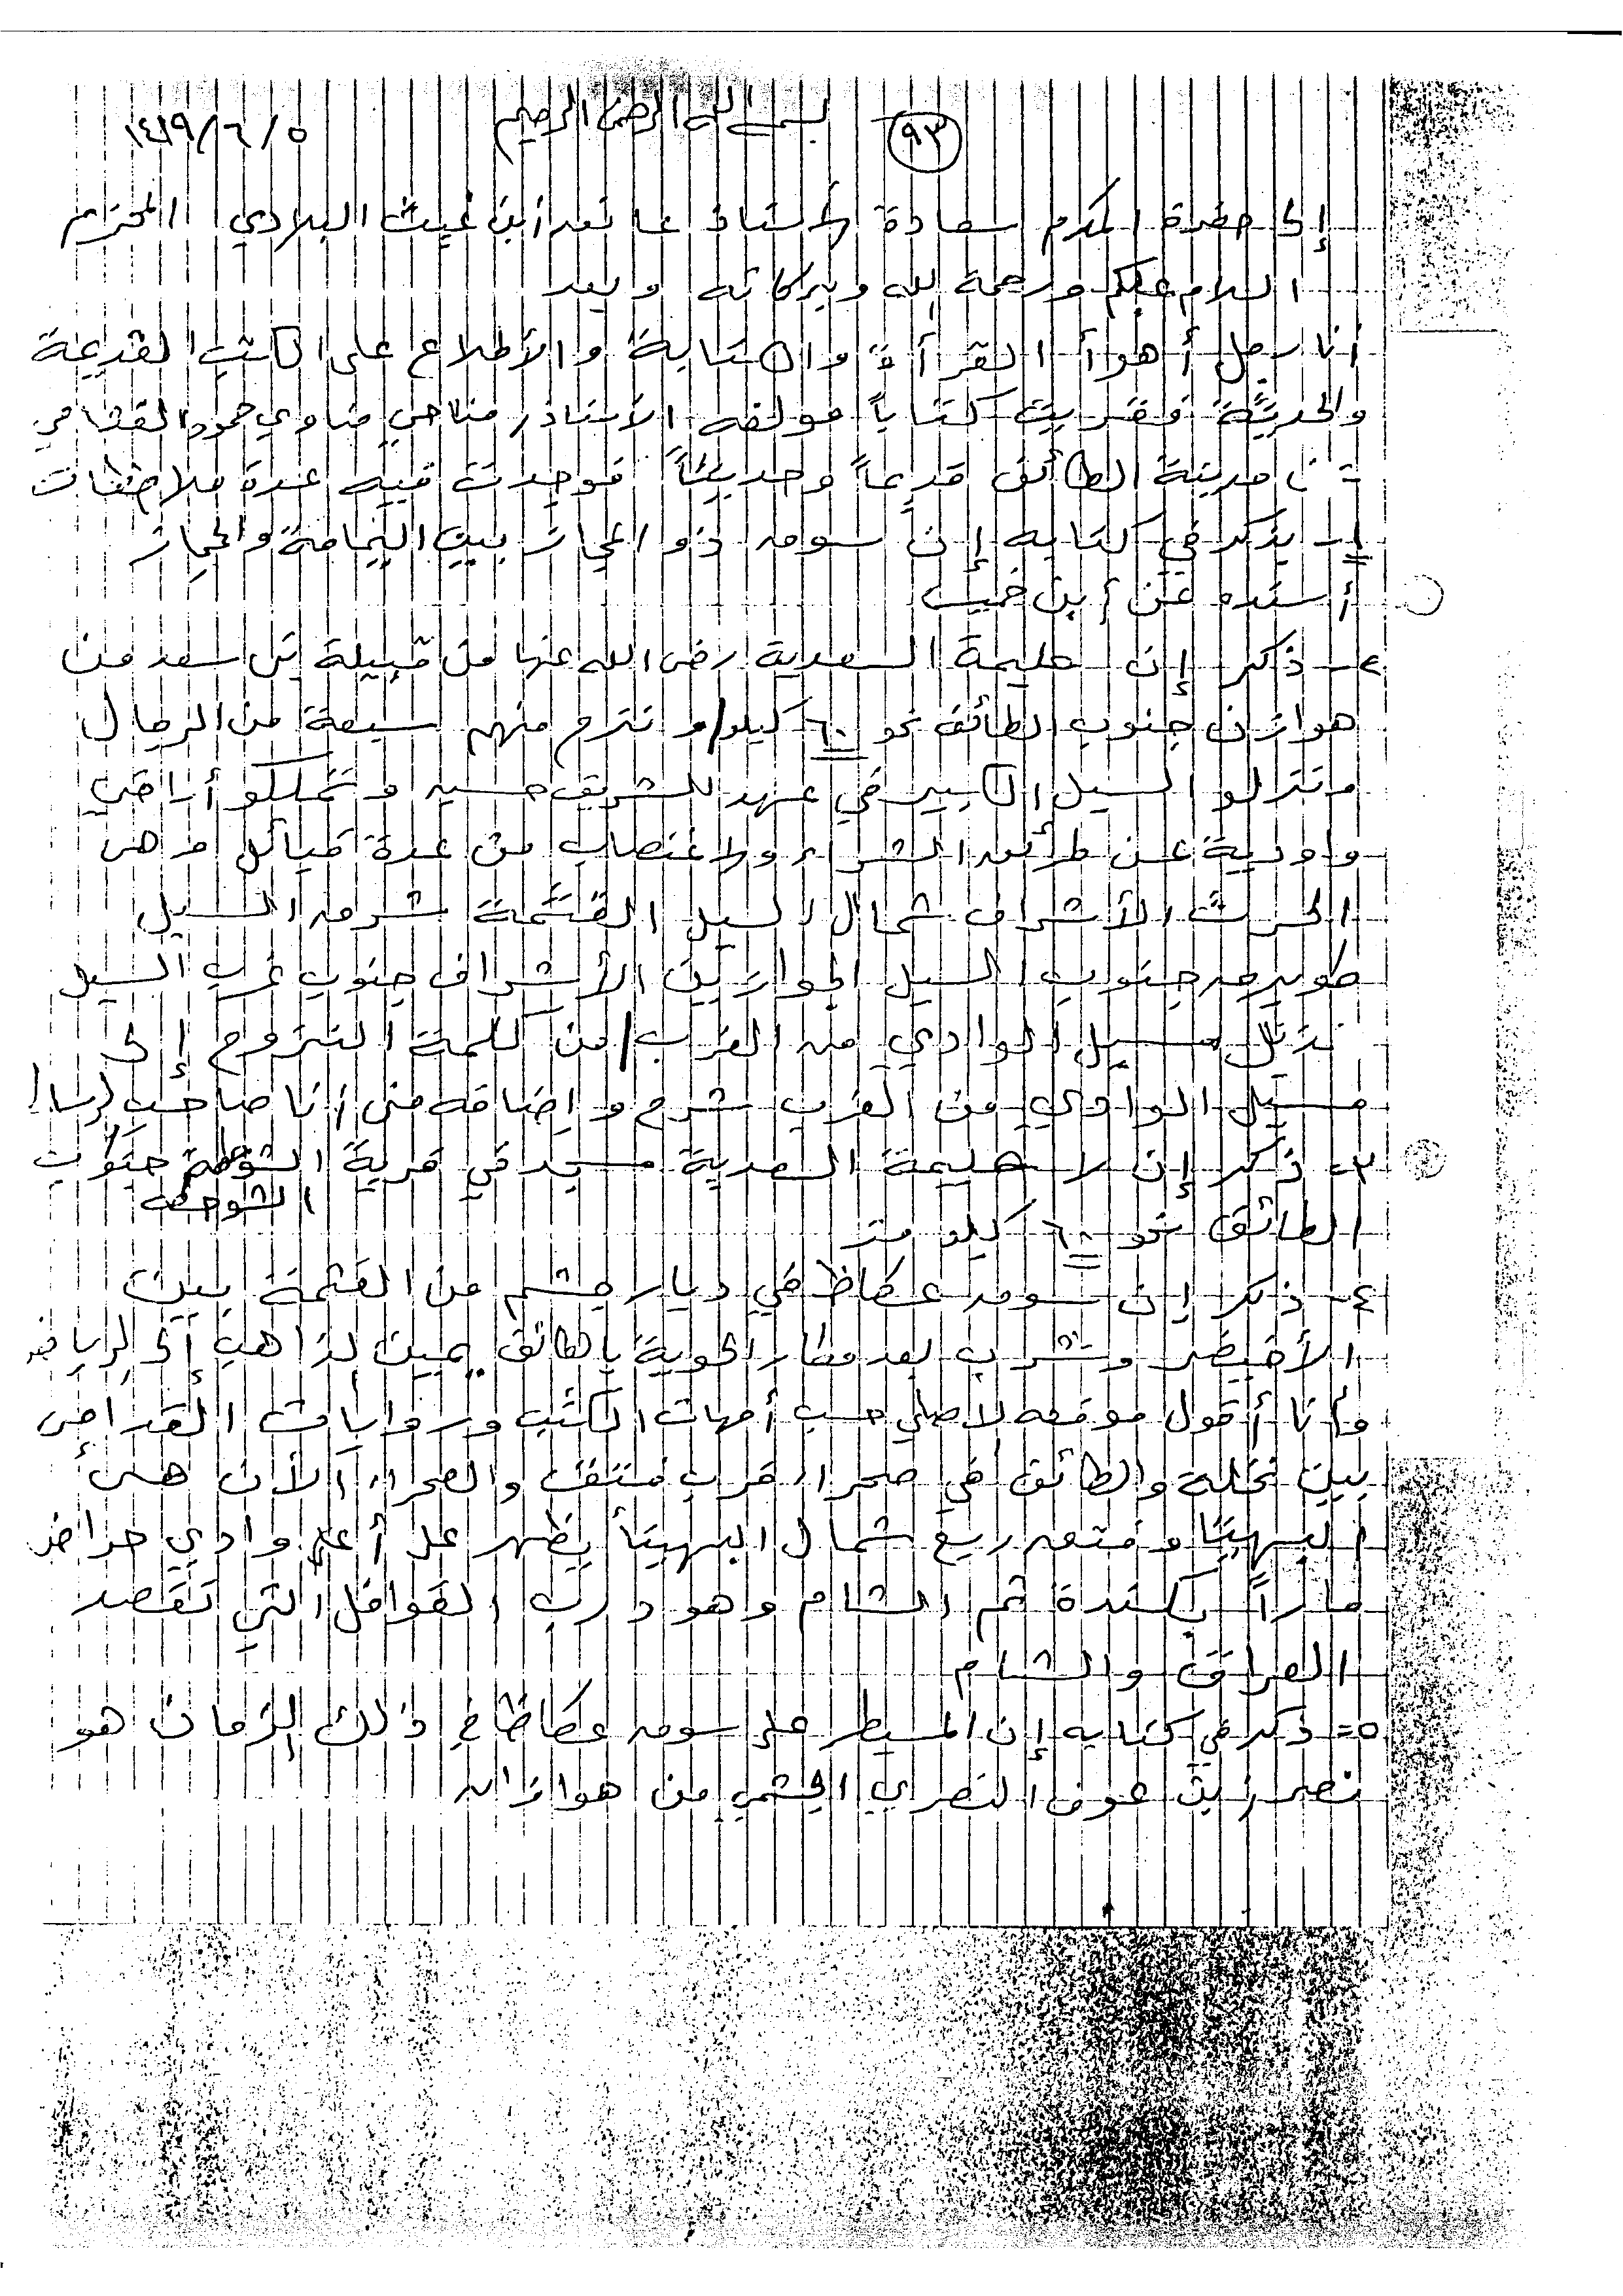 ٩٣ بسم الله الرحمن الرحيم ٥/٦/١٤١٩
إلى حضرة المكرم سعادة الأستاذ عاتق ابن غيث البلادي المحترم
السلام عليكم ورحمة الله وبركاته وبعد
أنا رجل أهوأ القرآة والكتابة والأطلاع على الكتب القديمة
والحديثة فقريت كتاباً مولفه الأستاذ مناحي ضاوي حمود القثامي
عن مدينة الطائف قديماً وحديثاً فوجدت فيه عدة ملاحظات
١- يذكر في كتابه إن سوق ذو المجاز بين اليمامة والحجاز
أسنده عن أبن خميس
٢- ذكر إن حليمة السعدية رضي الله عنها من قبيلة بني سعد من
هوازن جنوب الطائف نحو ٦٠ كيلو/ ونزح منهم سبعة من الرجال
ونزلو السيل الكبير في عهد للشريف حسين وتملكو أراضي
واودية عن طرائق الشراء ولاغتصاب من عدة قبائل وهي
الحرث الأشراف شمال السيل القثمة شرق السيل
طويرق جنوب السيل الجوازين الأشراف جنوب غرب السيل
مسيل الوادي من الغرب/ من كلمة النزوح إلى
مسيل الوادي من الغرب شرح وإضافه مني أنا صاحب
٣- ذكر إن لا حليمة السعدية مسجد في قرية الشوحطة جنوب
الشوحطه
الطائف نحو ٦٠ كيلو متر
٤- ذكر إن سوق عكاظ في ديار جشم من القثمة بين
الأخيضر وشرب بعد مطار الحوية بالطائف يمين لذاهب إلى الرياض
وأنا أقول موقعه لاصلي حسب أمهات الكتب وروايات القدامى
بين نخلة والطائف في صحراء قرب فتق والصحراء الأن هي
البهيتا وفتق ريع شمال البهيتا يظهر على أعلى وادي حراض
ماراً بكندة ثم الشام وهو دارب القوافل التي تقصد
العراق والشام
٥= ذكر في كتابه إن المسيطر على سوق عكاظ في ذلك الزمان هو
نصر بن عوف النصري الجشمي من هوازان